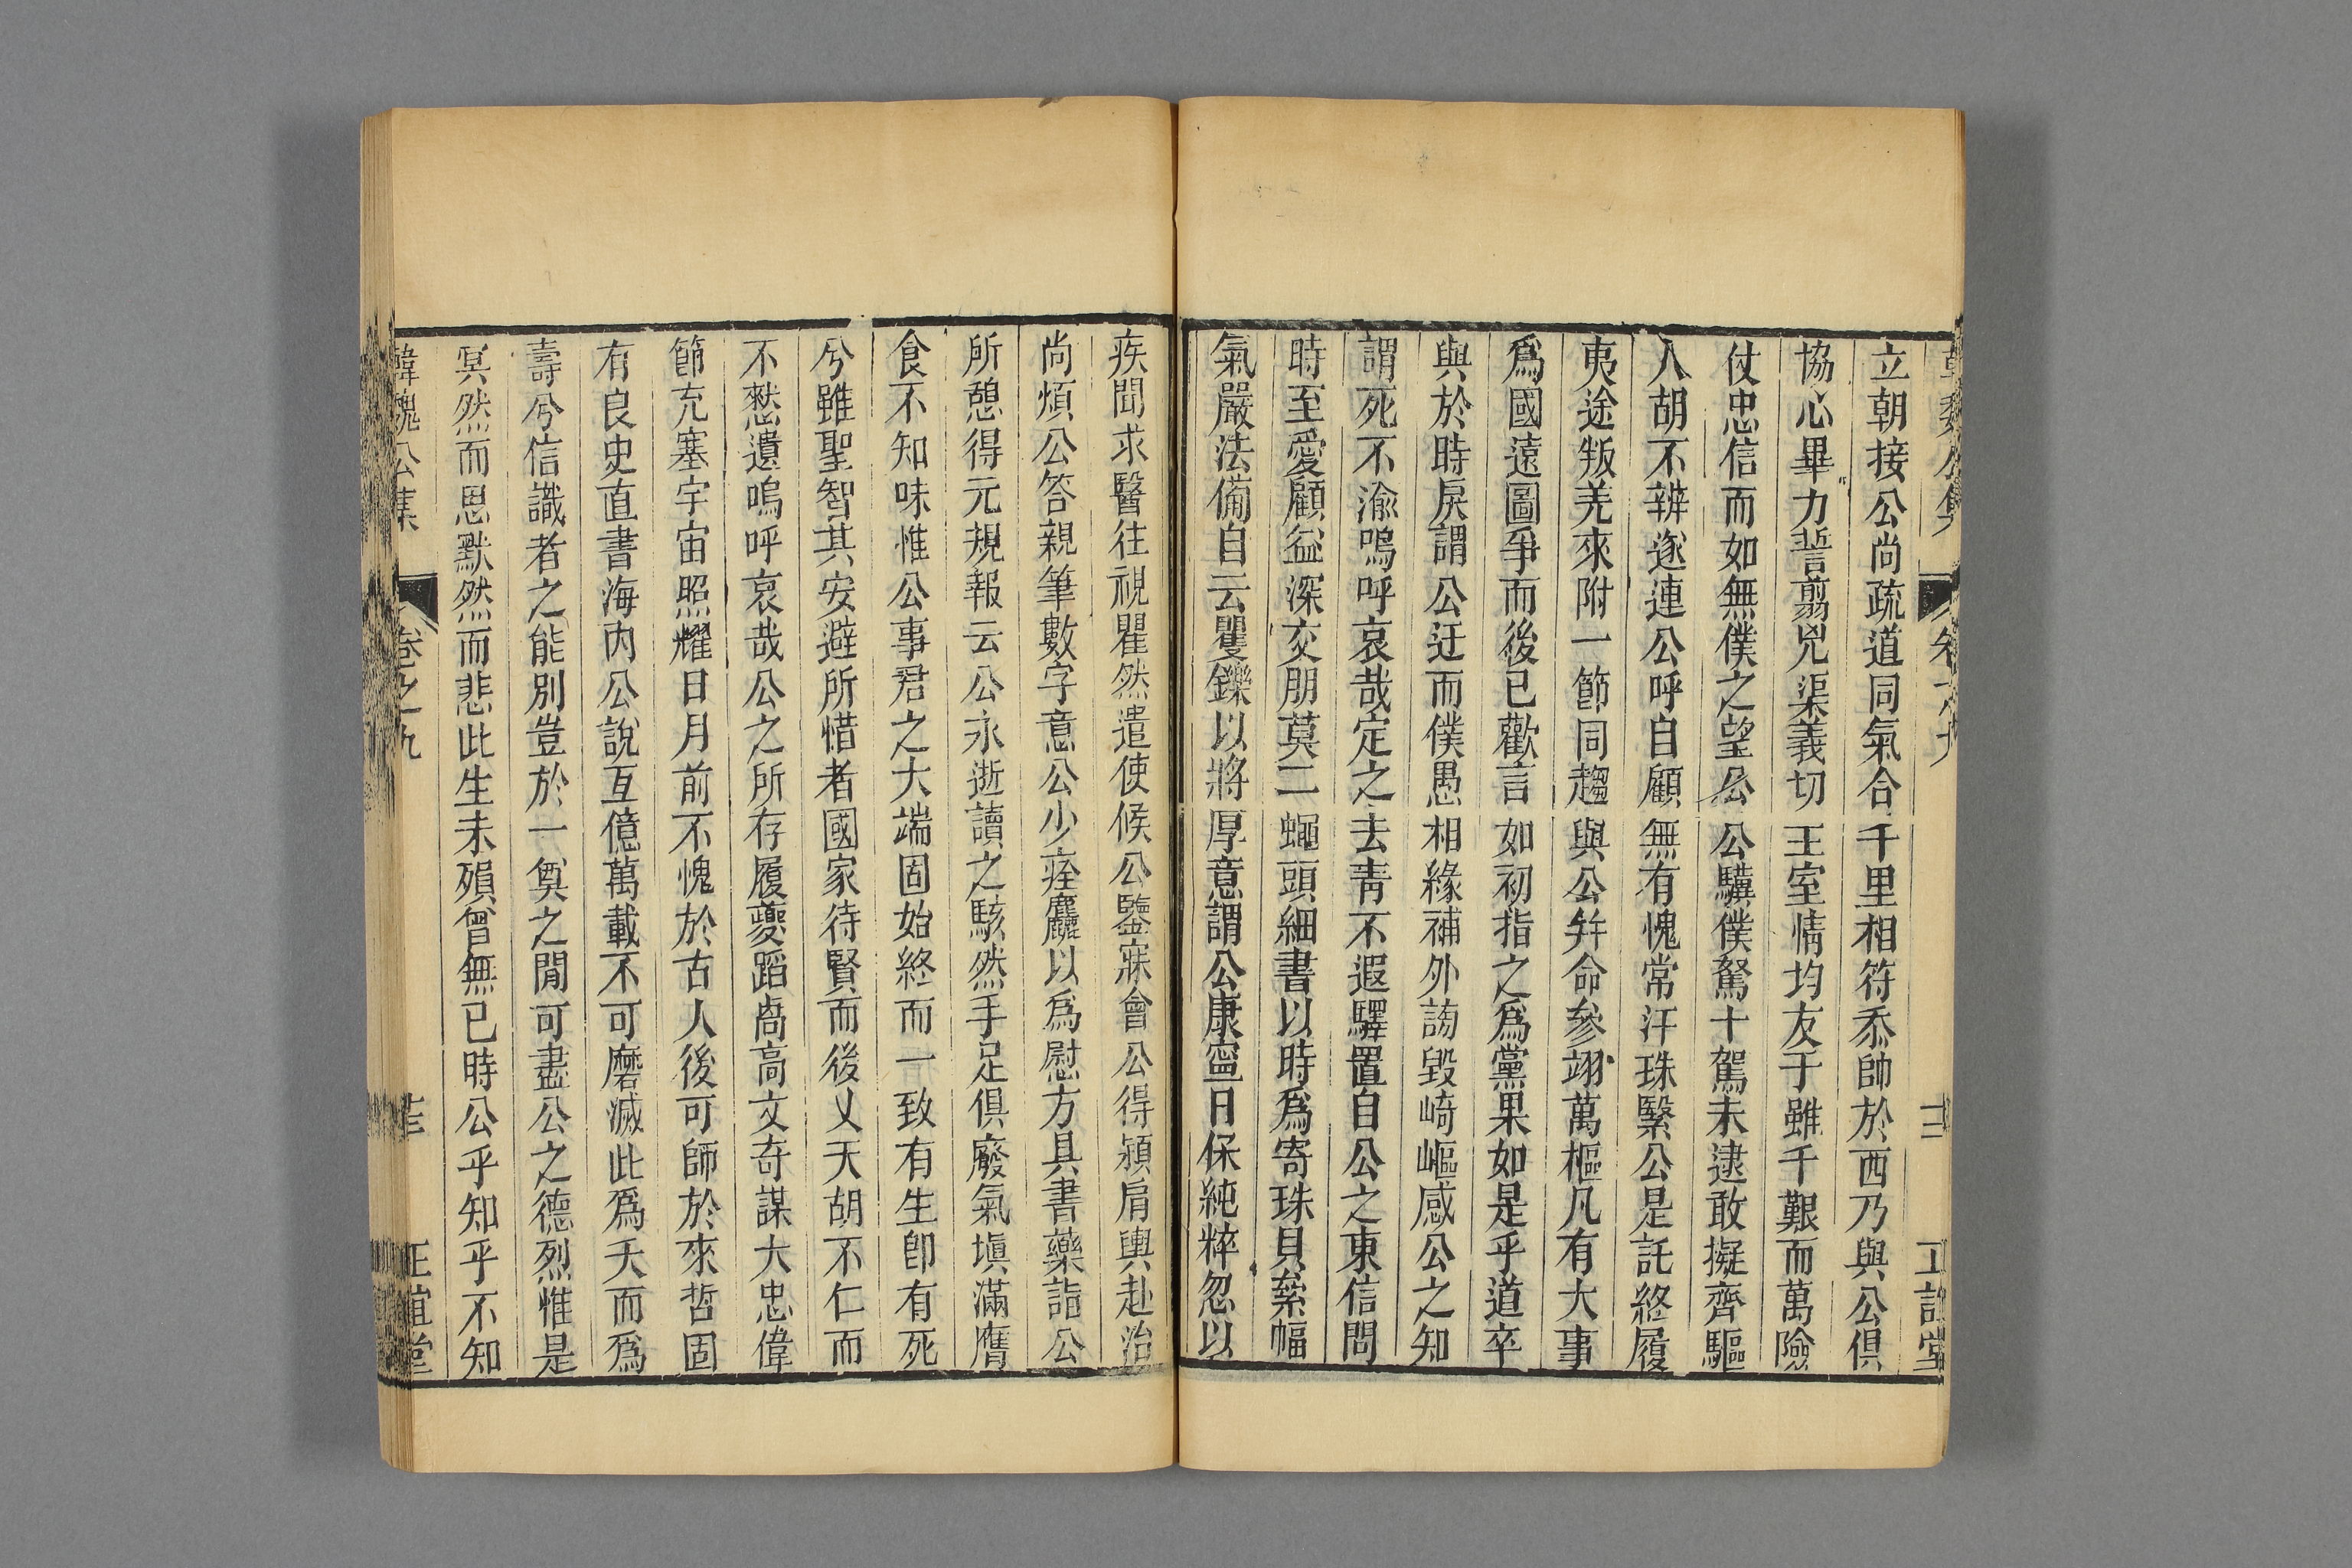 韓魏公集 卷之九 十二 正誼堂
立朝接公尚疏道同氣合千里相符忝帥於西乃與公俱
協心畢力誓翦兇渠義切王室情均友于雖千艱而萬險
仗忠信而如無僕之望公公驥僕駑十駕未逮敢擬齊驅
人胡不辨遂連公呼自顧無有愧常汗珠繄公是託終履
夷途叛羌來附一節同趨與公幷命參翊萬樞凡有大事
爲國遠圖爭而後已歡言如初指之爲黨果如是乎道卒
與於時戾謂公迂而僕愚相緣補外謗毀崎嶇感公之知
謂死不渝嗚呼哀哉定之去靑不遐驛置自公之東信問
時至愛顧益深交朋莫二蠅頭細書以時爲寄珠貝絫幅
氣嚴法備自云矍鑠以將厚意謂公康寧日保純粹忽以
疾聞求醫往視瞿然遣使候公鑒寐會公得潁肩輿赴治
尚煩公答親筆數字意公少痊麤以爲慰方具書藥詣公
所憩得元規報云公永逝讀之駭然手足俱廢氣塡滿膺
食不知味惟公事君之大端固始終而一致有生卽有死
兮雖聖智其安避所惜者國家待賢而後乂天胡不仁而
不憖遺嗚呼哀哉公之所存履夔蹈卨高文奇謀大忠偉
節充塞宇宙照耀日月前不愧於古人後可師於來哲固
有良史直書海內公說亙億萬載不可磨滅此爲夭而爲
壽兮信識者之能別豈於一奠之閒可盡公之德烈惟是
冥然而思默然而悲此生未殞曾無已時公乎知乎不知
韓魏公集 卷之九 正誼堂